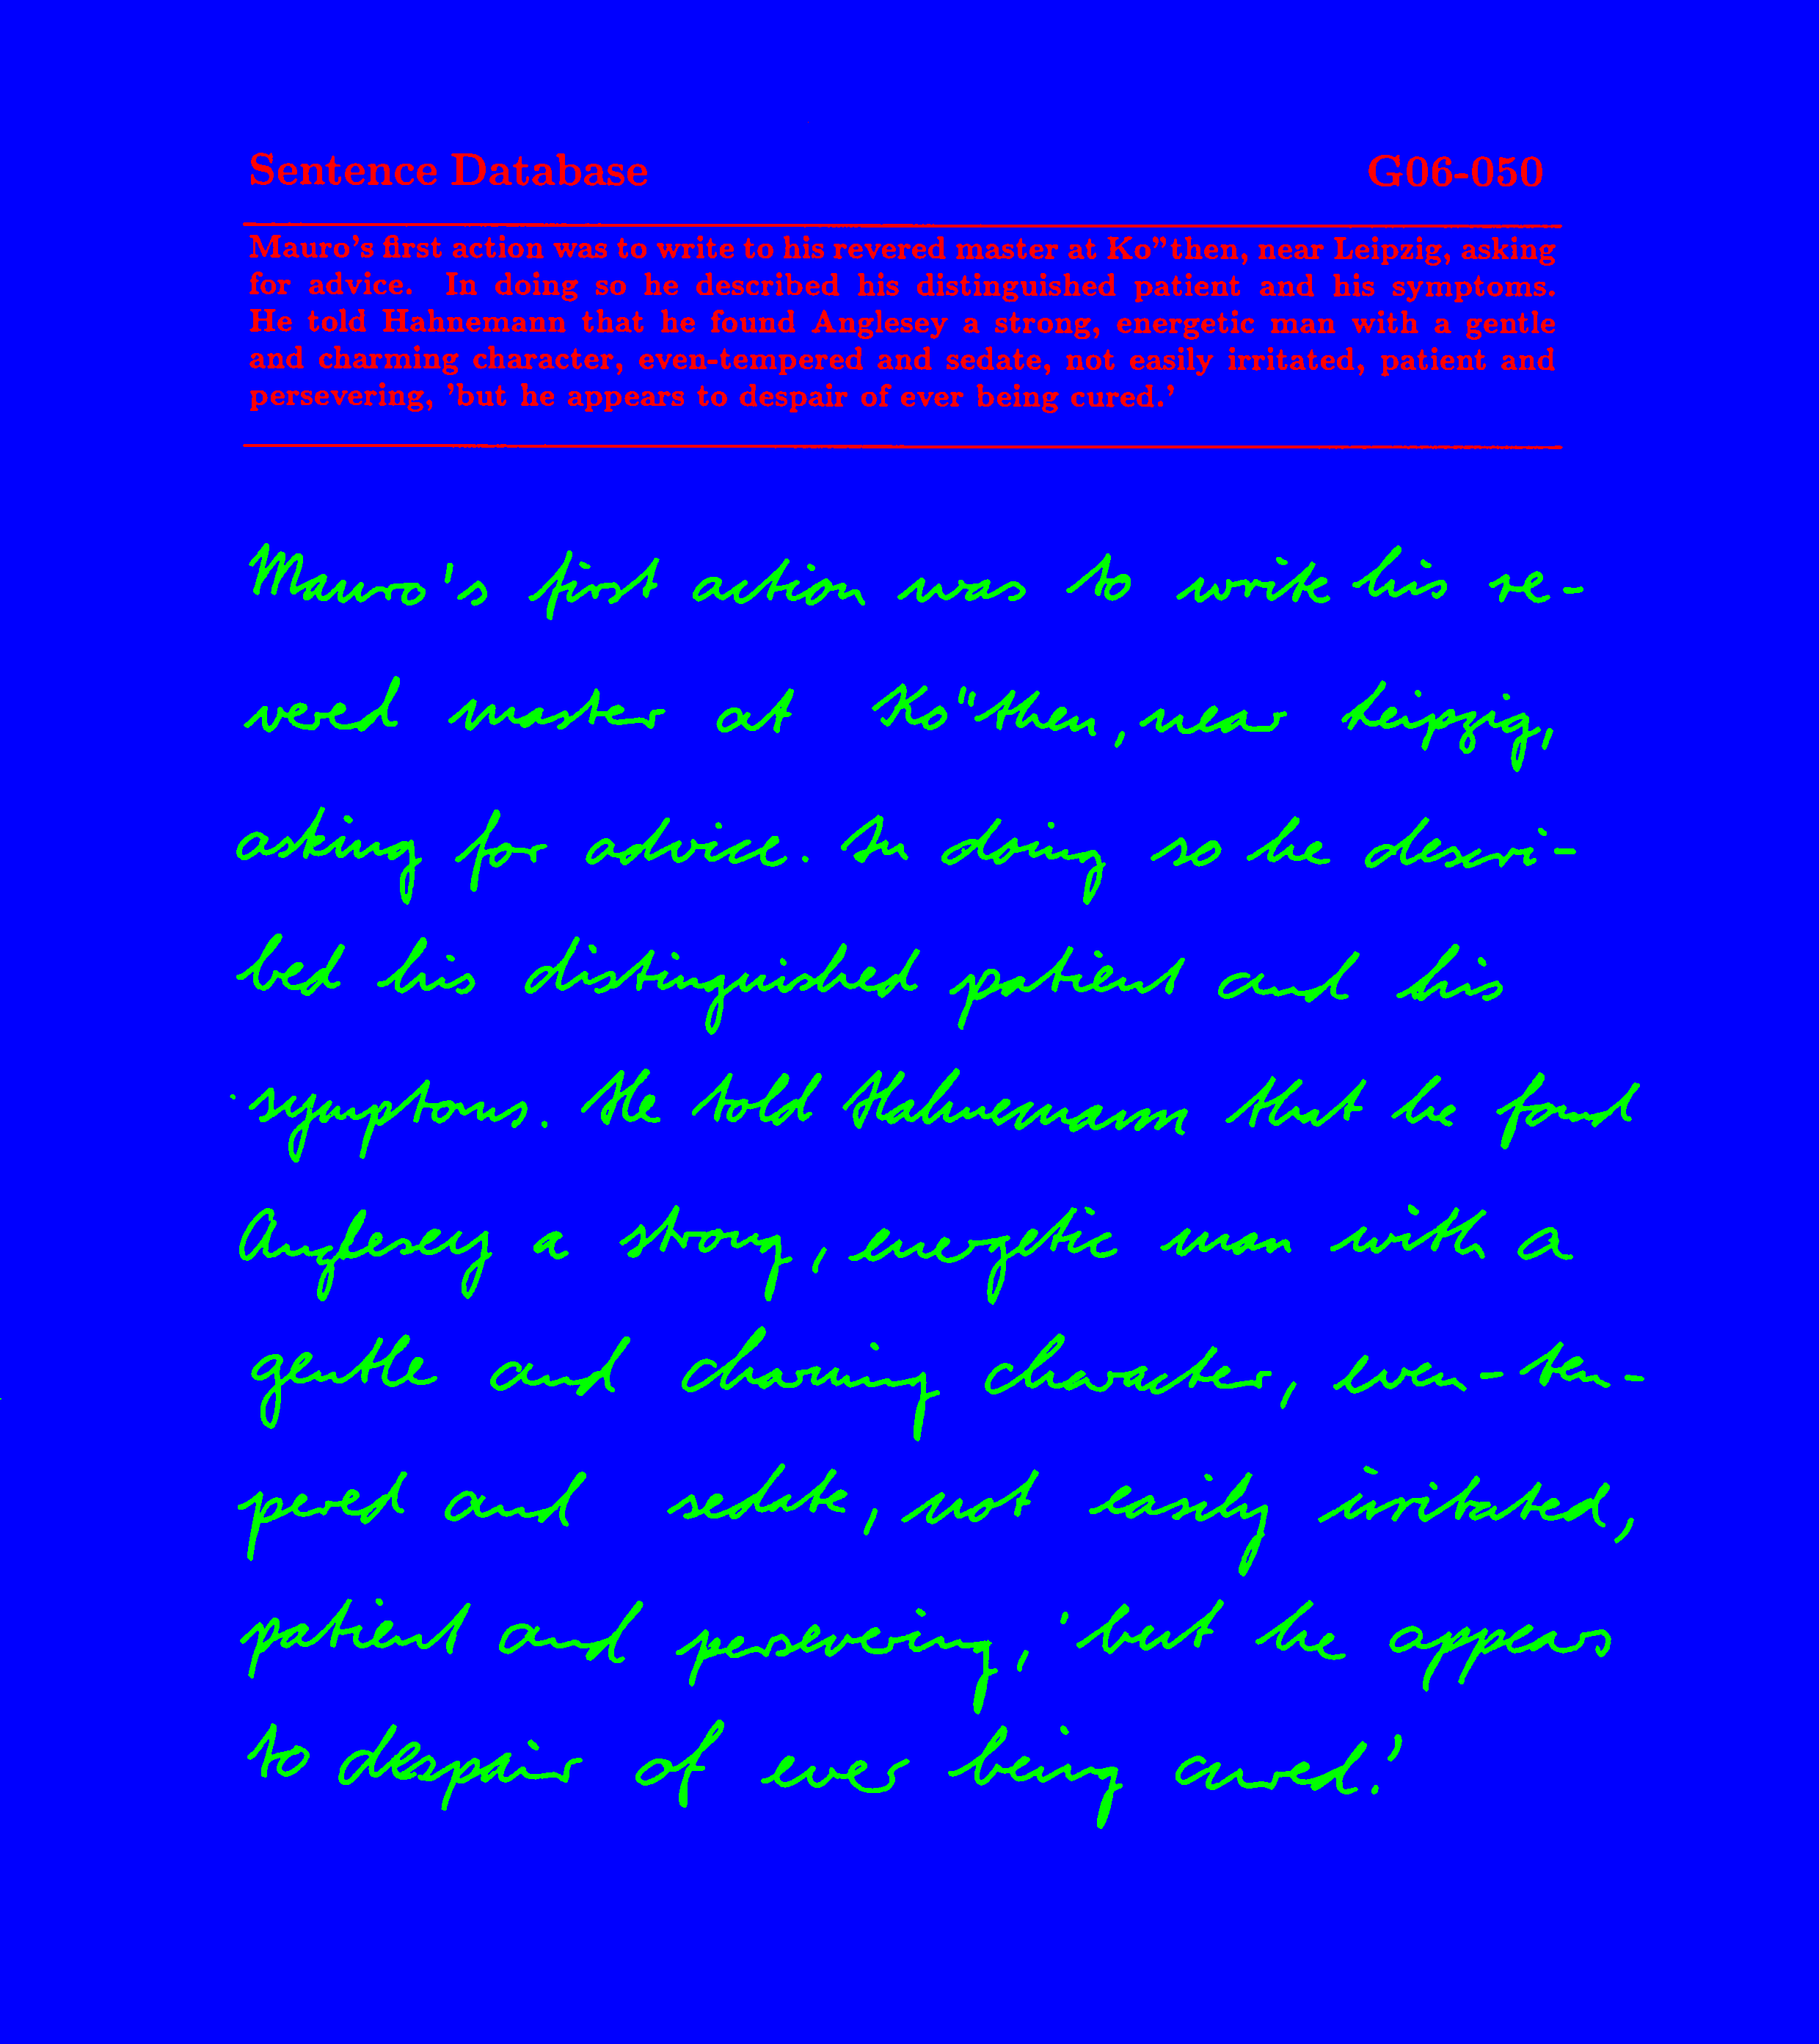 Sentence Database G06-050
Mauro's first action was to write to his revered master at Ko"then, near Leipzig, asking
for advice. In doing so he described his distinguished patient and his symptoms.
He told Hahnemann that he found Anglesey a strong, energetic man with a gentle
and charming character, even-tempered and sedate, not easily irritated, patient and
persevering, 'but he appears to despair of ever being cured.'
Mauro's first action was to write his re-
vered master at Ko"then, near Leipzig,
asking for advice. In doing so he descri-
bed his distinguished patient and his
symptoms. He told Hahnemann that he found
Anglesey a strong, energetic man with a
gentle and charming character, even-tem-
pered and sedate, not easily irritated,
patient and persevering, 'but he appears
to despair of ever being cured.'